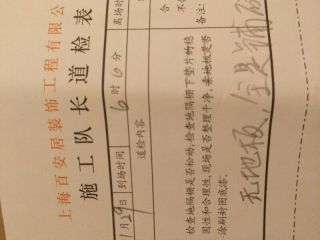 上海百安居装饰工程有限公
施工队长道检表
1月29日 到场时间 6时0分 离场时
道检内容 合
检查地隔栅是否松动,检查地隔栅下垫片的稳 不
固性和合理性,现场是否整理干净,素地板是否 备注:
涂刷封固底漆。
无地板,全是铺